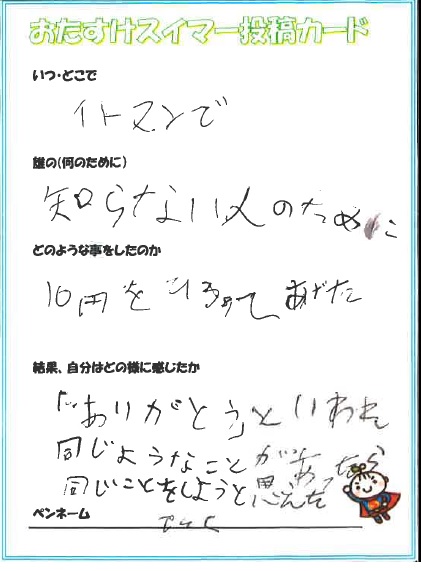 おたすけスイマー投稿カード
いつ・どこで
イトマンで
誰の(何のために)
知らない人のために
どのような事をしたのか
10円をひろってあげた
結果、自分はどの様に感じたか
「ありがとう」といわれ
同じようなことがあったら
同じことをしようと思った
ペンネーム